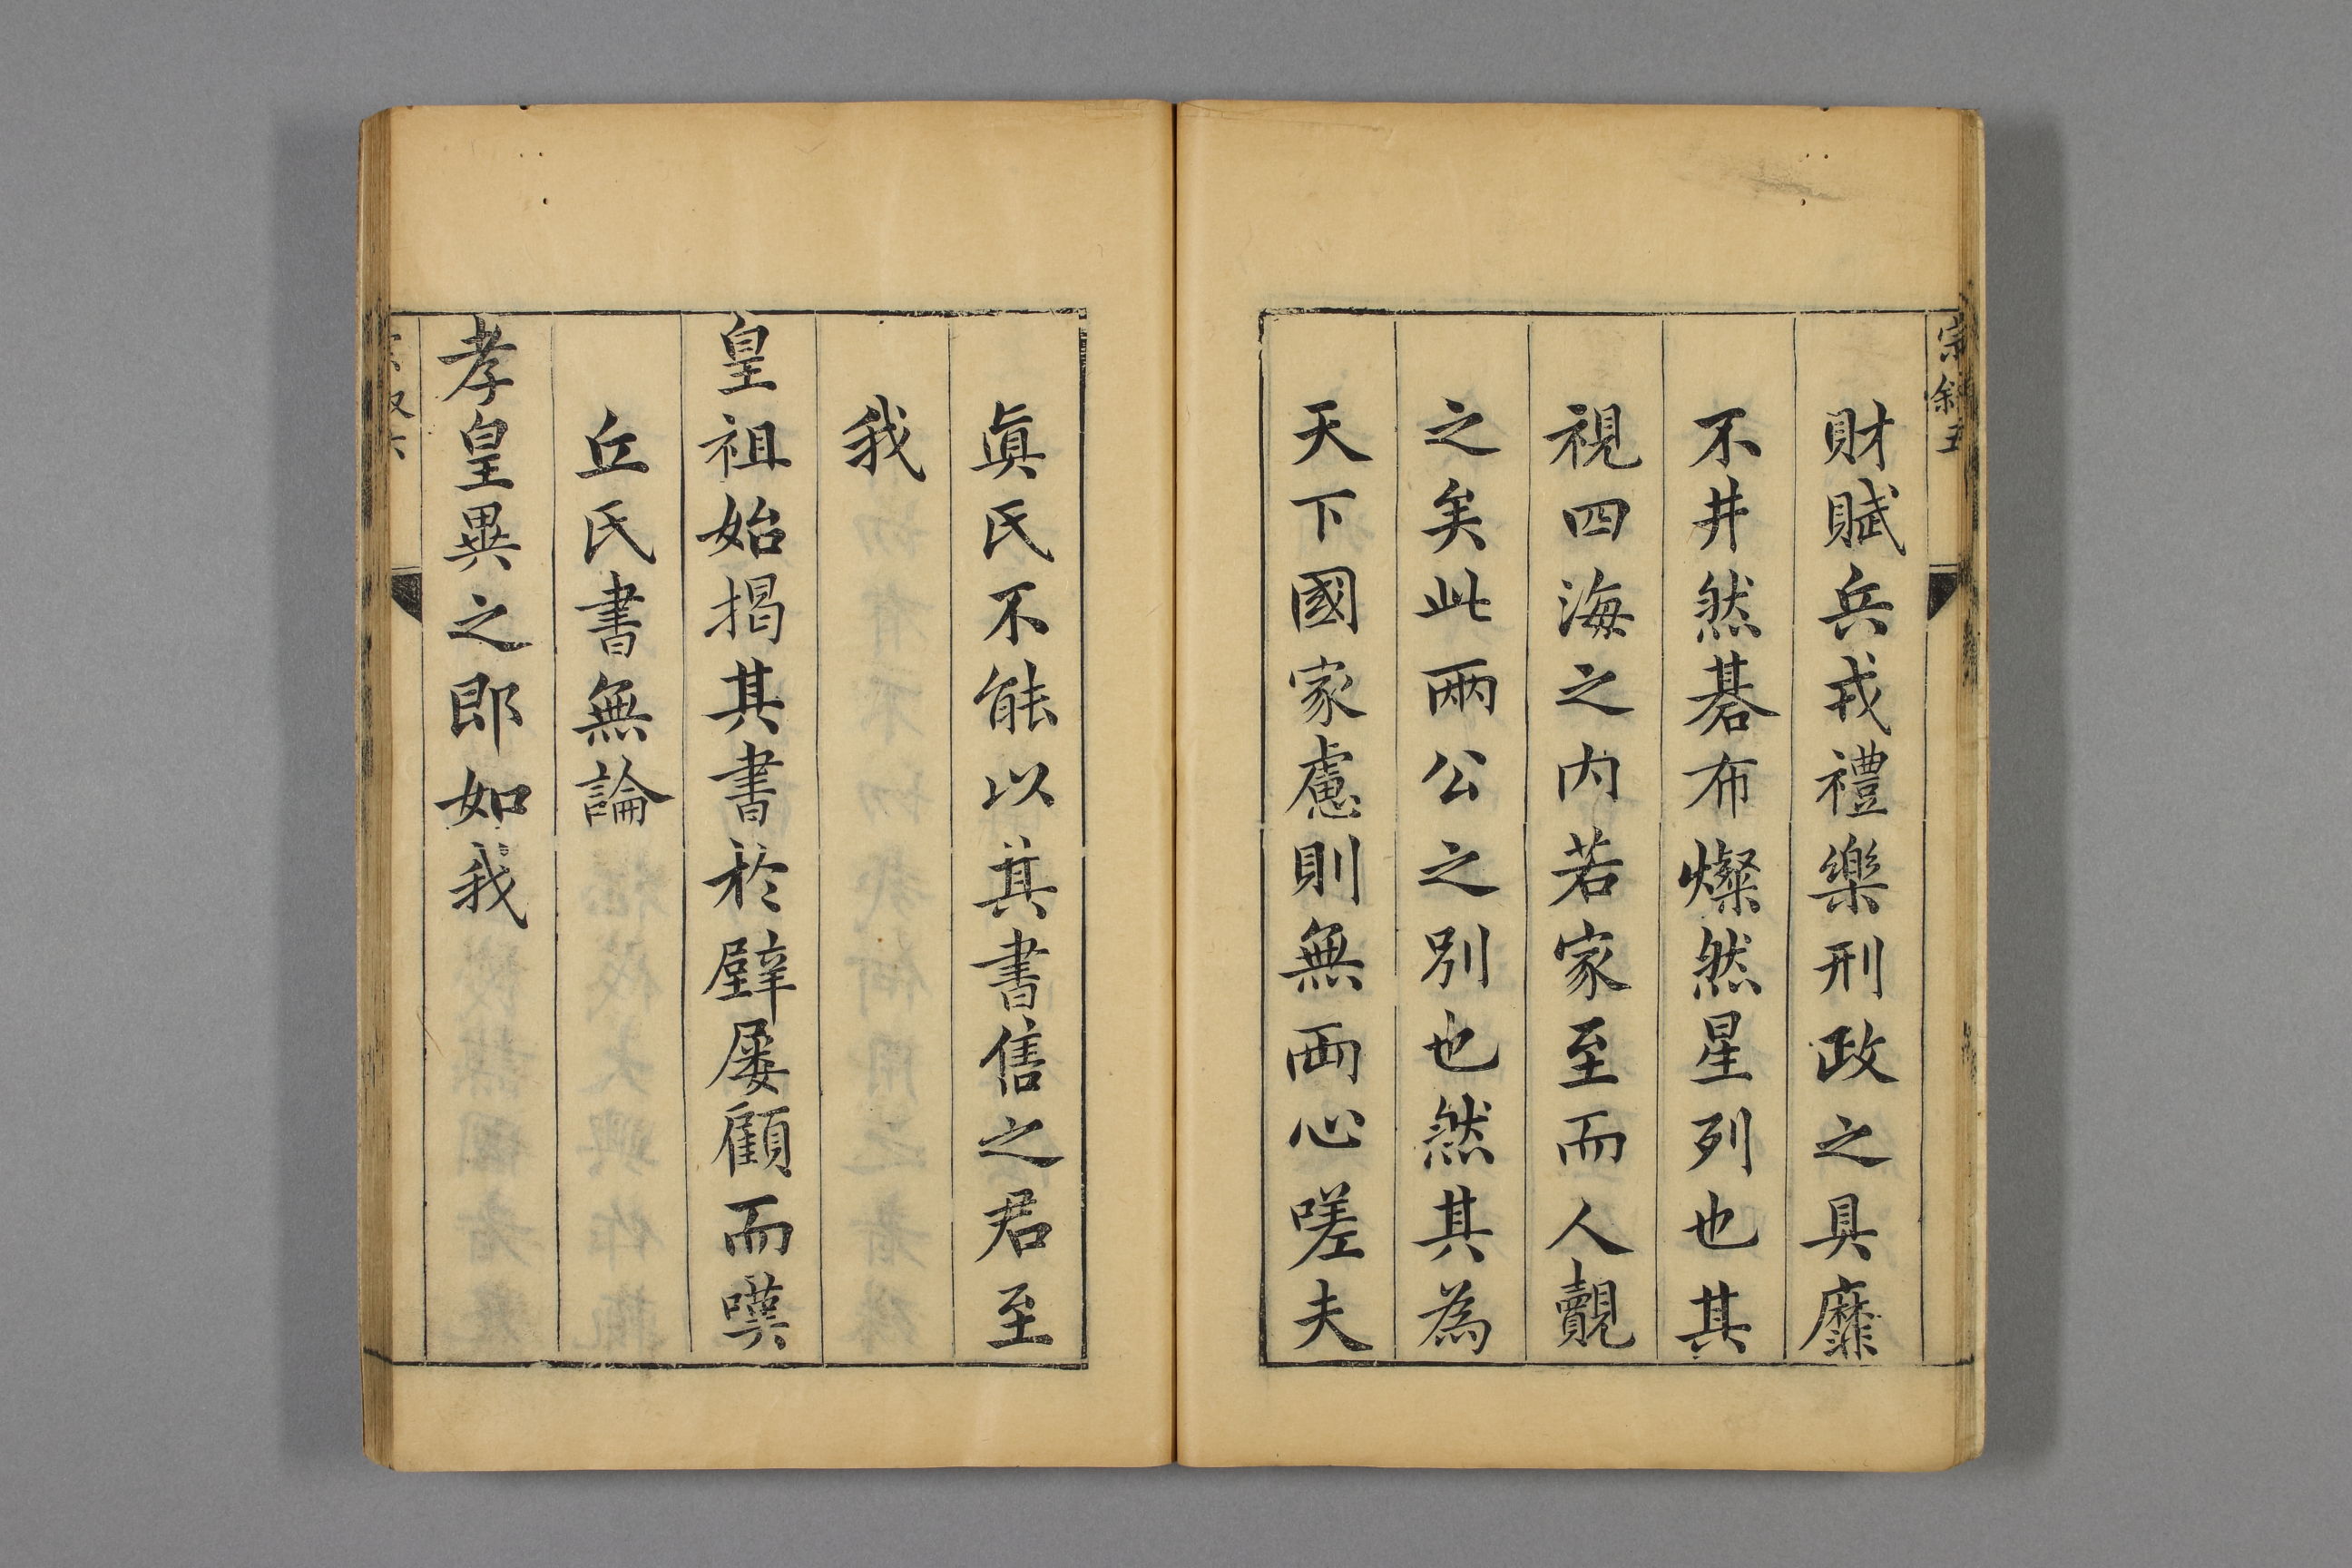 宗叙五
財賦兵戎禮樂刑政之具靡
不井然碁布燦然星列也其
視四海之内若家至而人覿
之矣此兩公之別也然其為
天下國家慮則無兩心嗟夫
眞氏不能以其書售之君至
我
皇祖始揭其書於壁屢顧而嘆
丘氏書無論
孝皇異之即如我